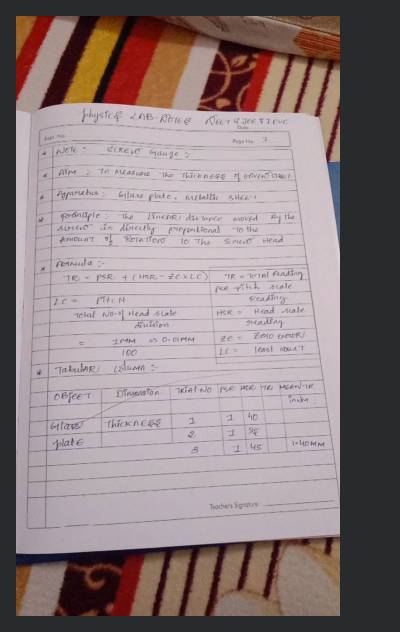 Physics LAB NOTES NEET & JEE & I PUC
Date
Expt. No.
Page No. 2
* Note :- SCREW Gauge :-
* Aim : To measure the thickness of given sheet
* Apparatus : Glass plate, metallic sheet
* Principle : The linear distance moved by the
screw is directly proportional to the
Amount of Rotation to the screw head
* Formula :-
TR = PSR + (HSR - ZE x LC)
TR = Total Reading
PSR = pitch scale
Reading
LC = PITCH
Total No. of Head scale
division
HSR = Head scale
Reading
= 1MM = 0.01MM
100
ZE = Zero error
LC = least count
* TABULAR COLUMN :-
OBJECT Dimension TRIAL NO PSR HSR TR MEAN TR
in mm
Glass THICKNESS 1 1 40
plate 2 1 38
3 1 45 1.40MM
Teachers Signature